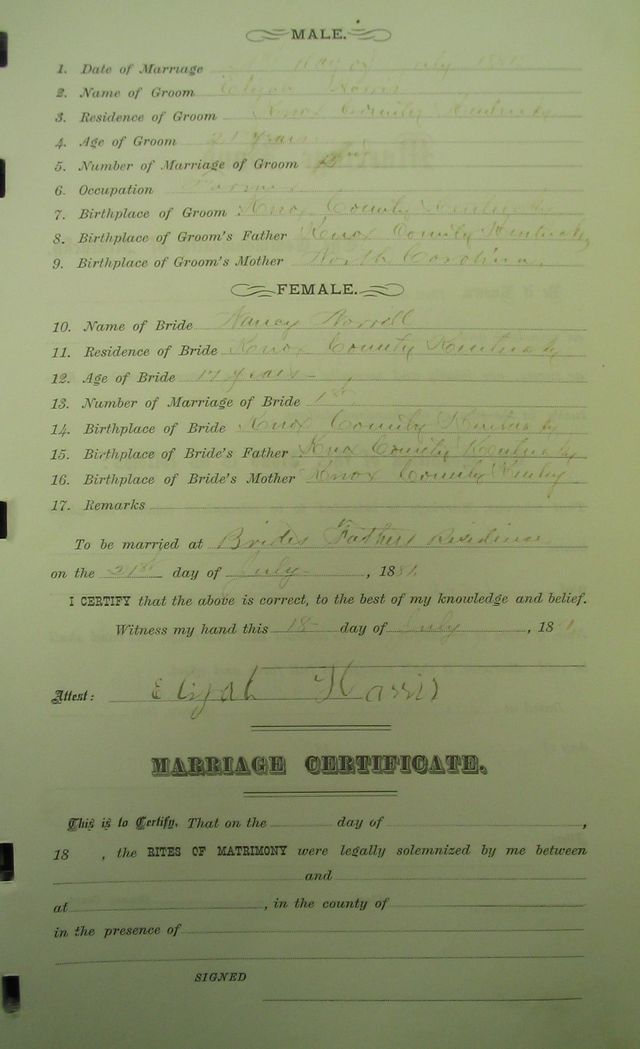 MALE.
1. Date of Marriage day of July 1881
2. Name of Groom Elijah Harris
3. Residence of Groom Knox County Kentucky
4. Age of Groom 21 years
5. Number of Marriage of Groom
6. Occupation Farmer
7. Birthplace of Groom Knox County Kentucky
8. Birthplace of Groom's Father Knox County Kentucky
9. Birthplace of Groom's Mother North Carolina.
FEMALE.
10. Name of Bride Nancy
11. Residence of Bride Knox County Kentucky
12. Age of Bride 17 years
13. Number of Marriage of Bride 1st
14. Birthplace of Bride Knox County Kentucky
15. Birthplace of Bride's Father Knox County Kentucky
16. Birthplace of Bride's Mother Knox County
17. Remarks
To be married at Brides Fathers Residence
on the 21st day of July, 1881
I CERTIFY that the above is correct, to the best of my knowledge and belief.
Witness my hand this 18 day of July, 1881
Attest: Elijah Harris
MARRIAGE CERTIFICATE.
This is to Certify, That on the day of ,
18 , the RITES OF MATRIMONY were legally solemnized by me between
and
at , in the county of
in the presence of
SIGNED